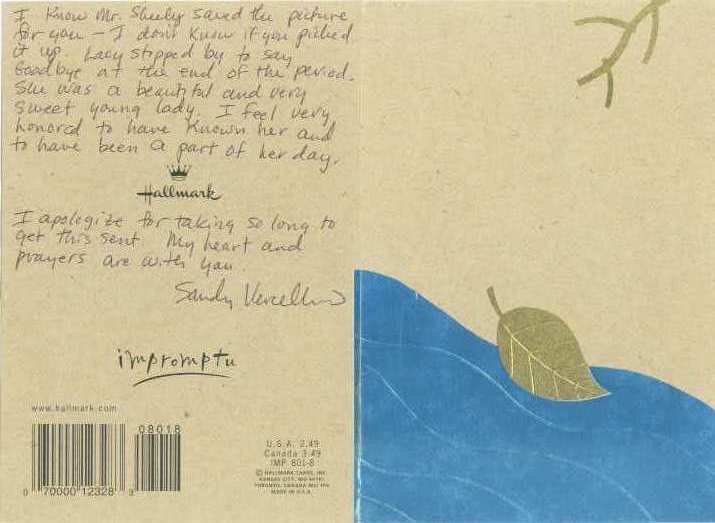 I know Mr. Sheely saved the picture
for you – I don't know if you picked
it up. Lacy stopped by to say
Goodbye at the end of the period.
She was a beautiful and very
sweet young lady. I feel very
honored to have known her and
to have been a part of her day.
Hallmark
I apologize for taking so long to
get this sent. My heart and
prayers are with you.
Sandy
impromptu
www.hallmark.com
08018
0 70000 12328 9
U.S.A. 2.49
Canada 3.49
IMP 801-8
© HALLMARK CARDS, INC.
KANSAS CITY, MO 64141
TORONTO, CANADA M2J 1P6
MADE IN U.S.A.